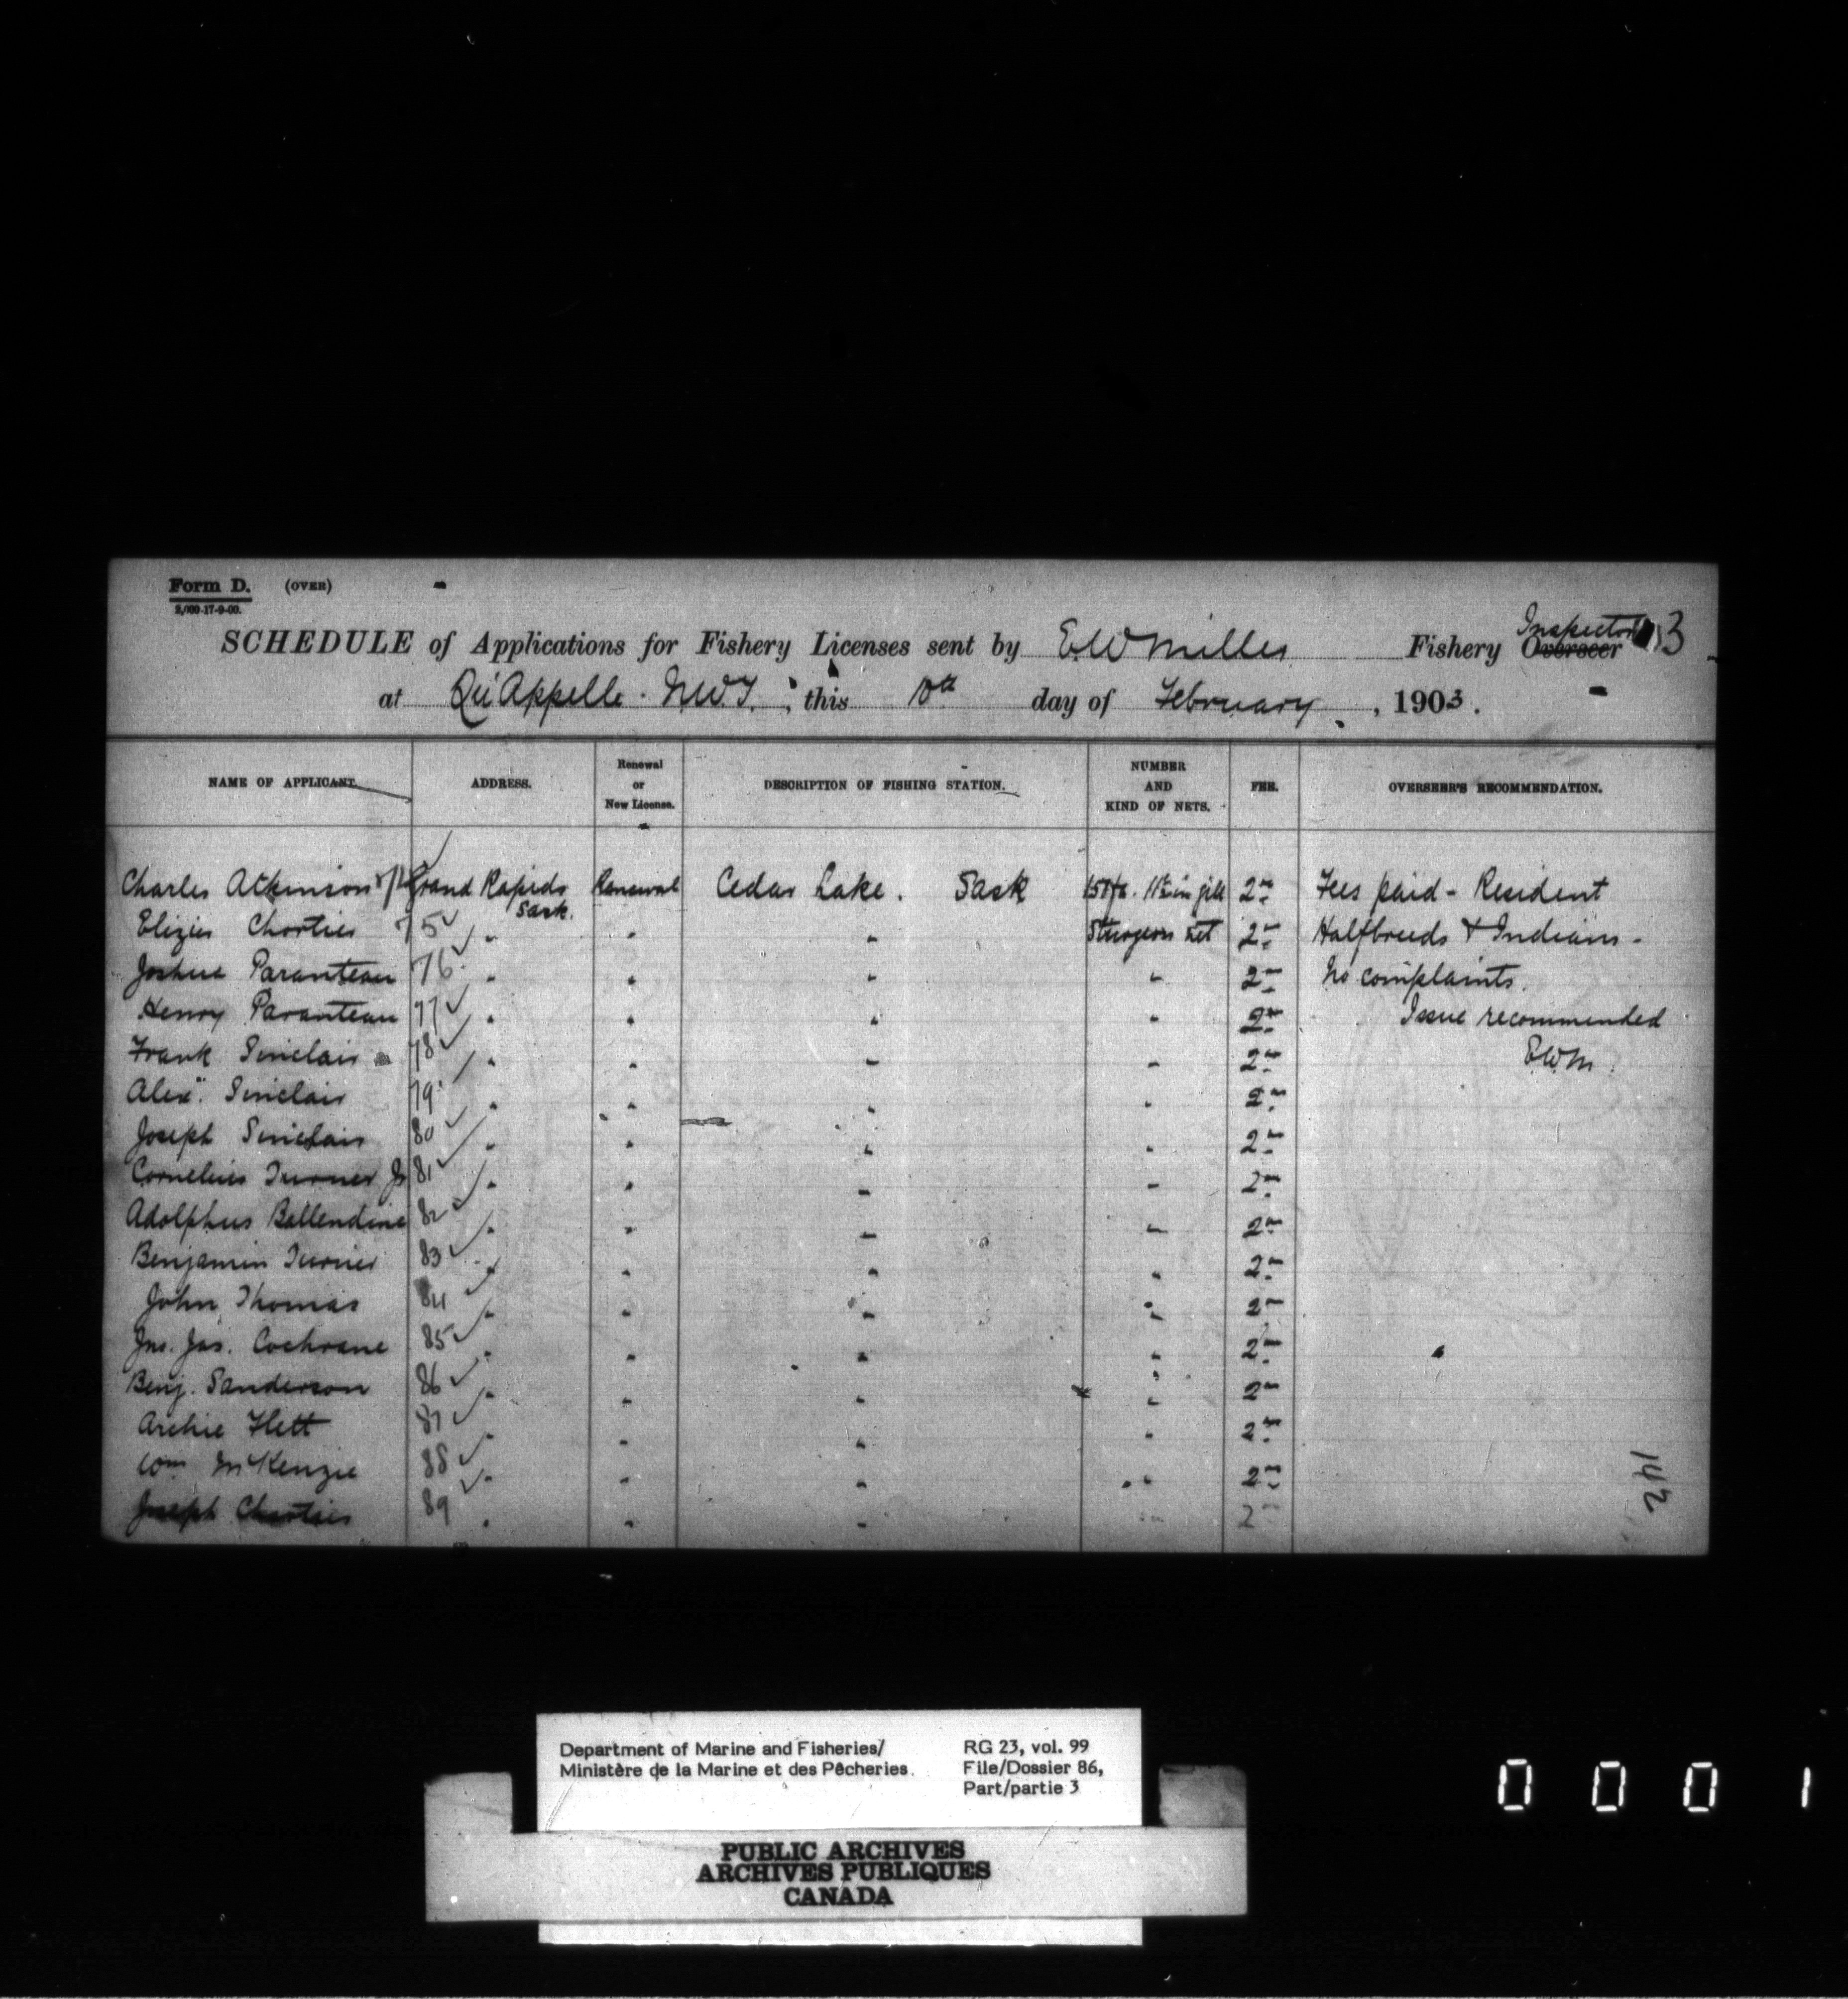 Form D. (OVER)
2,000-17-9-00.
Inspector 3
SCHEDULE of Applications for Fishery Licenses sent by E W Miller Fishery Overseer
at Qu'Appelle. N.W.T. ; this 10th day of February , 1903.
NAME OF APPLICANT. ADDRESS. Renewal or New License. DESCRIPTION OF FISHING STATION. NUMBER AND KIND OF NETS. FEE. OVERSEER'S RECOMMENDATION.
Charles Atkinson Grand Rapids Renewal Cedar Lake. Sask in gill 2 Fees paid - Resident
Sask.
Elizier Chartier 75 " " " Sturgeon net 2 Halfbreeds & Indians -
Joshua Paranteau 76 " " " " 2 No complaints.
Henry Paranteau 77 " " " " 2 Issue recommended
Frank Sinclair 78 " " " " 2 EWM
Alex. Sinclair 79 " " " " 2
Joseph Sinclair 80 " " " " 2
Cornelius Turner Jr 81 " " " " 2
Adolphus Ballendine 82 " " " " 2
Benjamin Turner 83 " " " " 2
John Thomas 84 " " " " 2
Jno. Jas. Cochrane 85 " " " " 2
Benj. Sanderson 86 " " " " 2
Archie Flett 87 " " " " 2
Wm McKenzie 88 " " " " 2
Joseph Chartier 89 " " " " 2
142
Department of Marine and Fisheries/ RG 23, vol. 99
Ministère de la Marine et des Pêcheries. File/Dossier 86,
Part/partie 3
PUBLIC ARCHIVES
ARCHIVES PUBLIQUES
CANADA
0 0 0 1